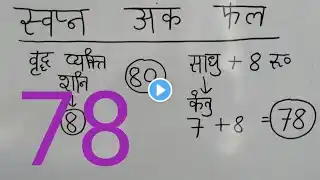 स्वप्न अंक फल
वृद्ध व्यक्ति
शनि
8
80
साधु + 8 रु०
केतु
7 + 8 = 78
78